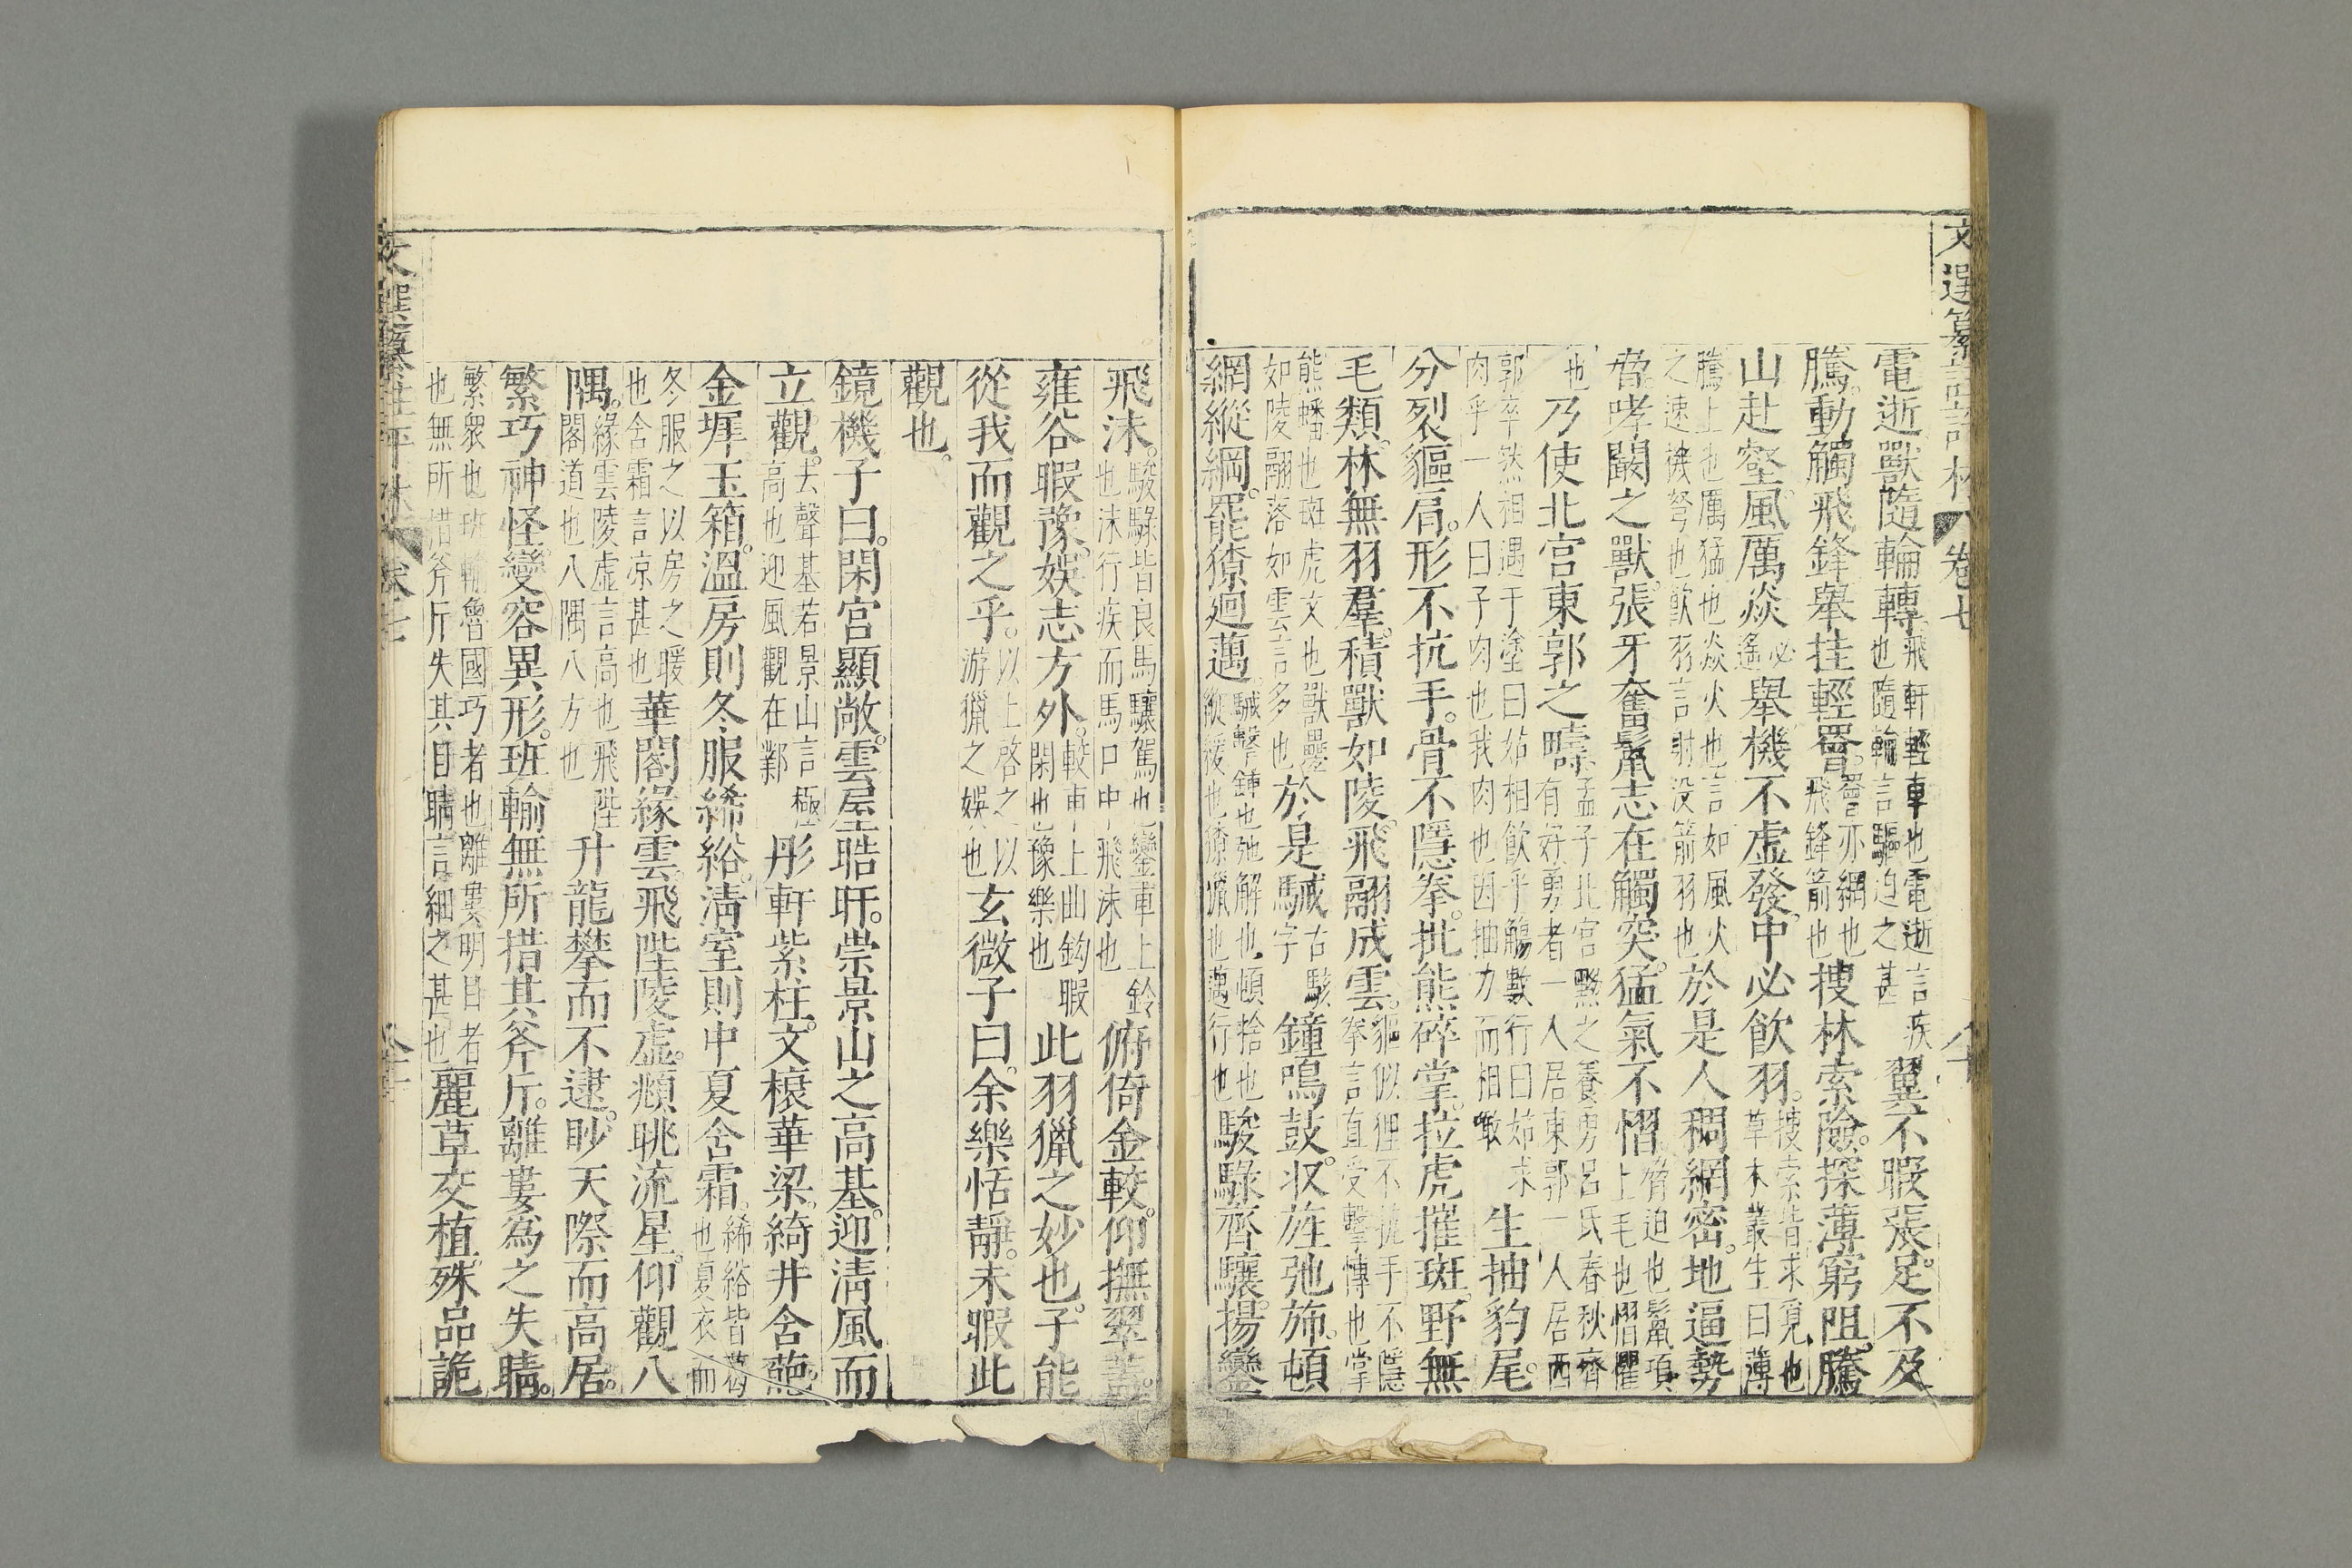 文選纂註評林 卷七
電逝獸隨輪轉飛軒輕車也電逝言疾也隨輪言驅迫之甚翼不暇張足不及
騰動觸飛鋒舉挂輕罾罾亦網也飛鋒箭也搜林索險探薄窮阻騰
山赴壑風厲焱必遙舉機不虛發中必飲羽搜索皆求覓也草木叢生曰薄
騰上也厲猛也焱火也言如風火之速機弩也飲羽言射没箭羽也於是人稠網密地逼勢
脅哮闞之獸張牙奮鬣志在觸突猛氣不慴脅迫也鬣項上毛也慴懼
也乃使北宮東郭之疇孟子北宮黝之養勇呂氏春秋齊有好勇者一人居東郭一人居西
郭卒然相遇于塗曰姑相飲乎觴數行曰姑求肉乎一人曰子肉也我肉也因抽刀而相噉生抽豹尾
分裂貙肩形不抗手骨不隱拳批熊碎掌拉虎摧斑野無
毛類林無羽羣積獸如陵飛翮成雲貙似狸不抗手不隱拳言直受擊慱也掌
熊蟠也斑虎文也獸壘如陵翮落如雲言多也於是駴古駭字鐘鳴鼓収旌弛斾頓
網縱綱罷獠迴邁駴擊鍾也弛解也頓捨也縱緩也獠獵也邁行也駿騄齊驤揚鑾
飛沬駿騄皆良馬驤駕也鑾車上鈴也沬行疾而馬口中飛沬也俯倚金較仰撫翠蓋
雍容暇豫娛志方外較車上曲鈎暇閑也豫樂也此羽獵之妙也子能
從我而觀之乎以上啓之以游獵之娛也玄微子曰余樂恬靜未暇此
觀也
鏡機子曰閑宮顯敞雲屋晧旰崇景山之高基迎清風而
立觀去聲基若景山言極高也迎風觀在鄴彤軒紫柱文榱華梁綺井含葩
金墀玉箱溫房則冬服絺綌清室則中夏含霜絺綌皆葛也夏衣而
冬服之以房之暖也含霜言凉甚也華閣緣雲飛陛陵虛頫眺流星仰觀八
隅緣雲陵虛言高也飛陛閣道也八隅八方也升龍攀而不逮眇天際而高居
繁巧神怪變容異形班輸無所措其斧斤離婁為之失睛
繁衆也班輸魯國巧者也離婁明目者也無所措斧斤失其目睛言細之甚也麗草交植殊品詭